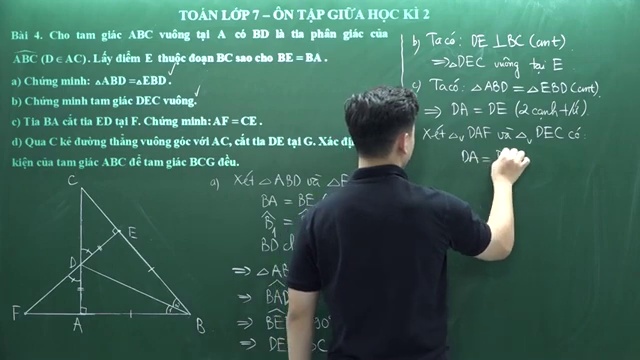 TOÁN LỚP 7 – ÔN TẬP GIỮA HỌC KÌ 2
Bài 4. Cho tam giác ABC vuông tại A có BD là tia phân giác của
ABC (D ∈ AC). Lấy điểm E thuộc đoạn BC sao cho BE = BA.
a) Chứng minh: △ABD = △EBD.
b) Chứng minh tam giác DEC vuông.
c) Tia BA cắt tia ED tại F. Chứng minh: AF = CE.
d) Qua C kẻ đường thẳng vuông góc với AC, cắt tia DE tại G. Xác
kiện của tam giác ABC để tam giác BCG đều.
b) Ta có: DE ⊥ BC (cmt)
⇒ △DEC vuông tại E
c) Ta có: △ABD = △EBD (cmt)
⇒ DA = DE (2 cạnh t/ứ)
Xét △v DAF và △v DEC có:
DA =
a) Xét △ABD và △E
BA = BE
B1 =
BD
⇒ △AB
⇒ BAD
⇒ BE 90°
⇒ DE BC
C
E
D
F
A
B